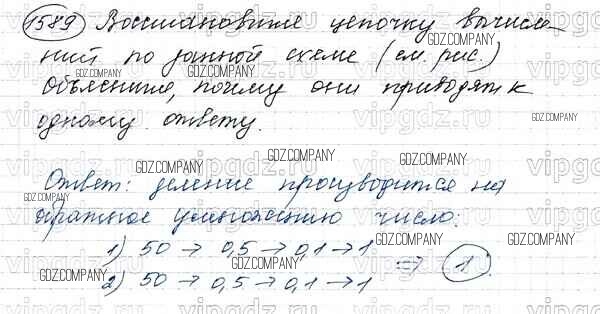 1589 Восстановите цепочку вычисле-
ний по данной схеме (см. рис.)
Объясните, почему они приводят к
одному ответу.
Ответ: деление производится на
обратное умножению число:
1) 50 → 0,5 → 0,1 → 1
2) 50 → 0,5 → 0,1 → 1
⇒ 1
GDZ.COMPANY
GDZ.COMPANY
GDZ.COMPANY
GDZ.COMPANY
GDZ.COMPANY
GDZ.COMPANY
GDZ.COMPANY
GDZ.COMPANY
GDZ.COMPANY
GDZ.COMPANY
vipgdz.ru